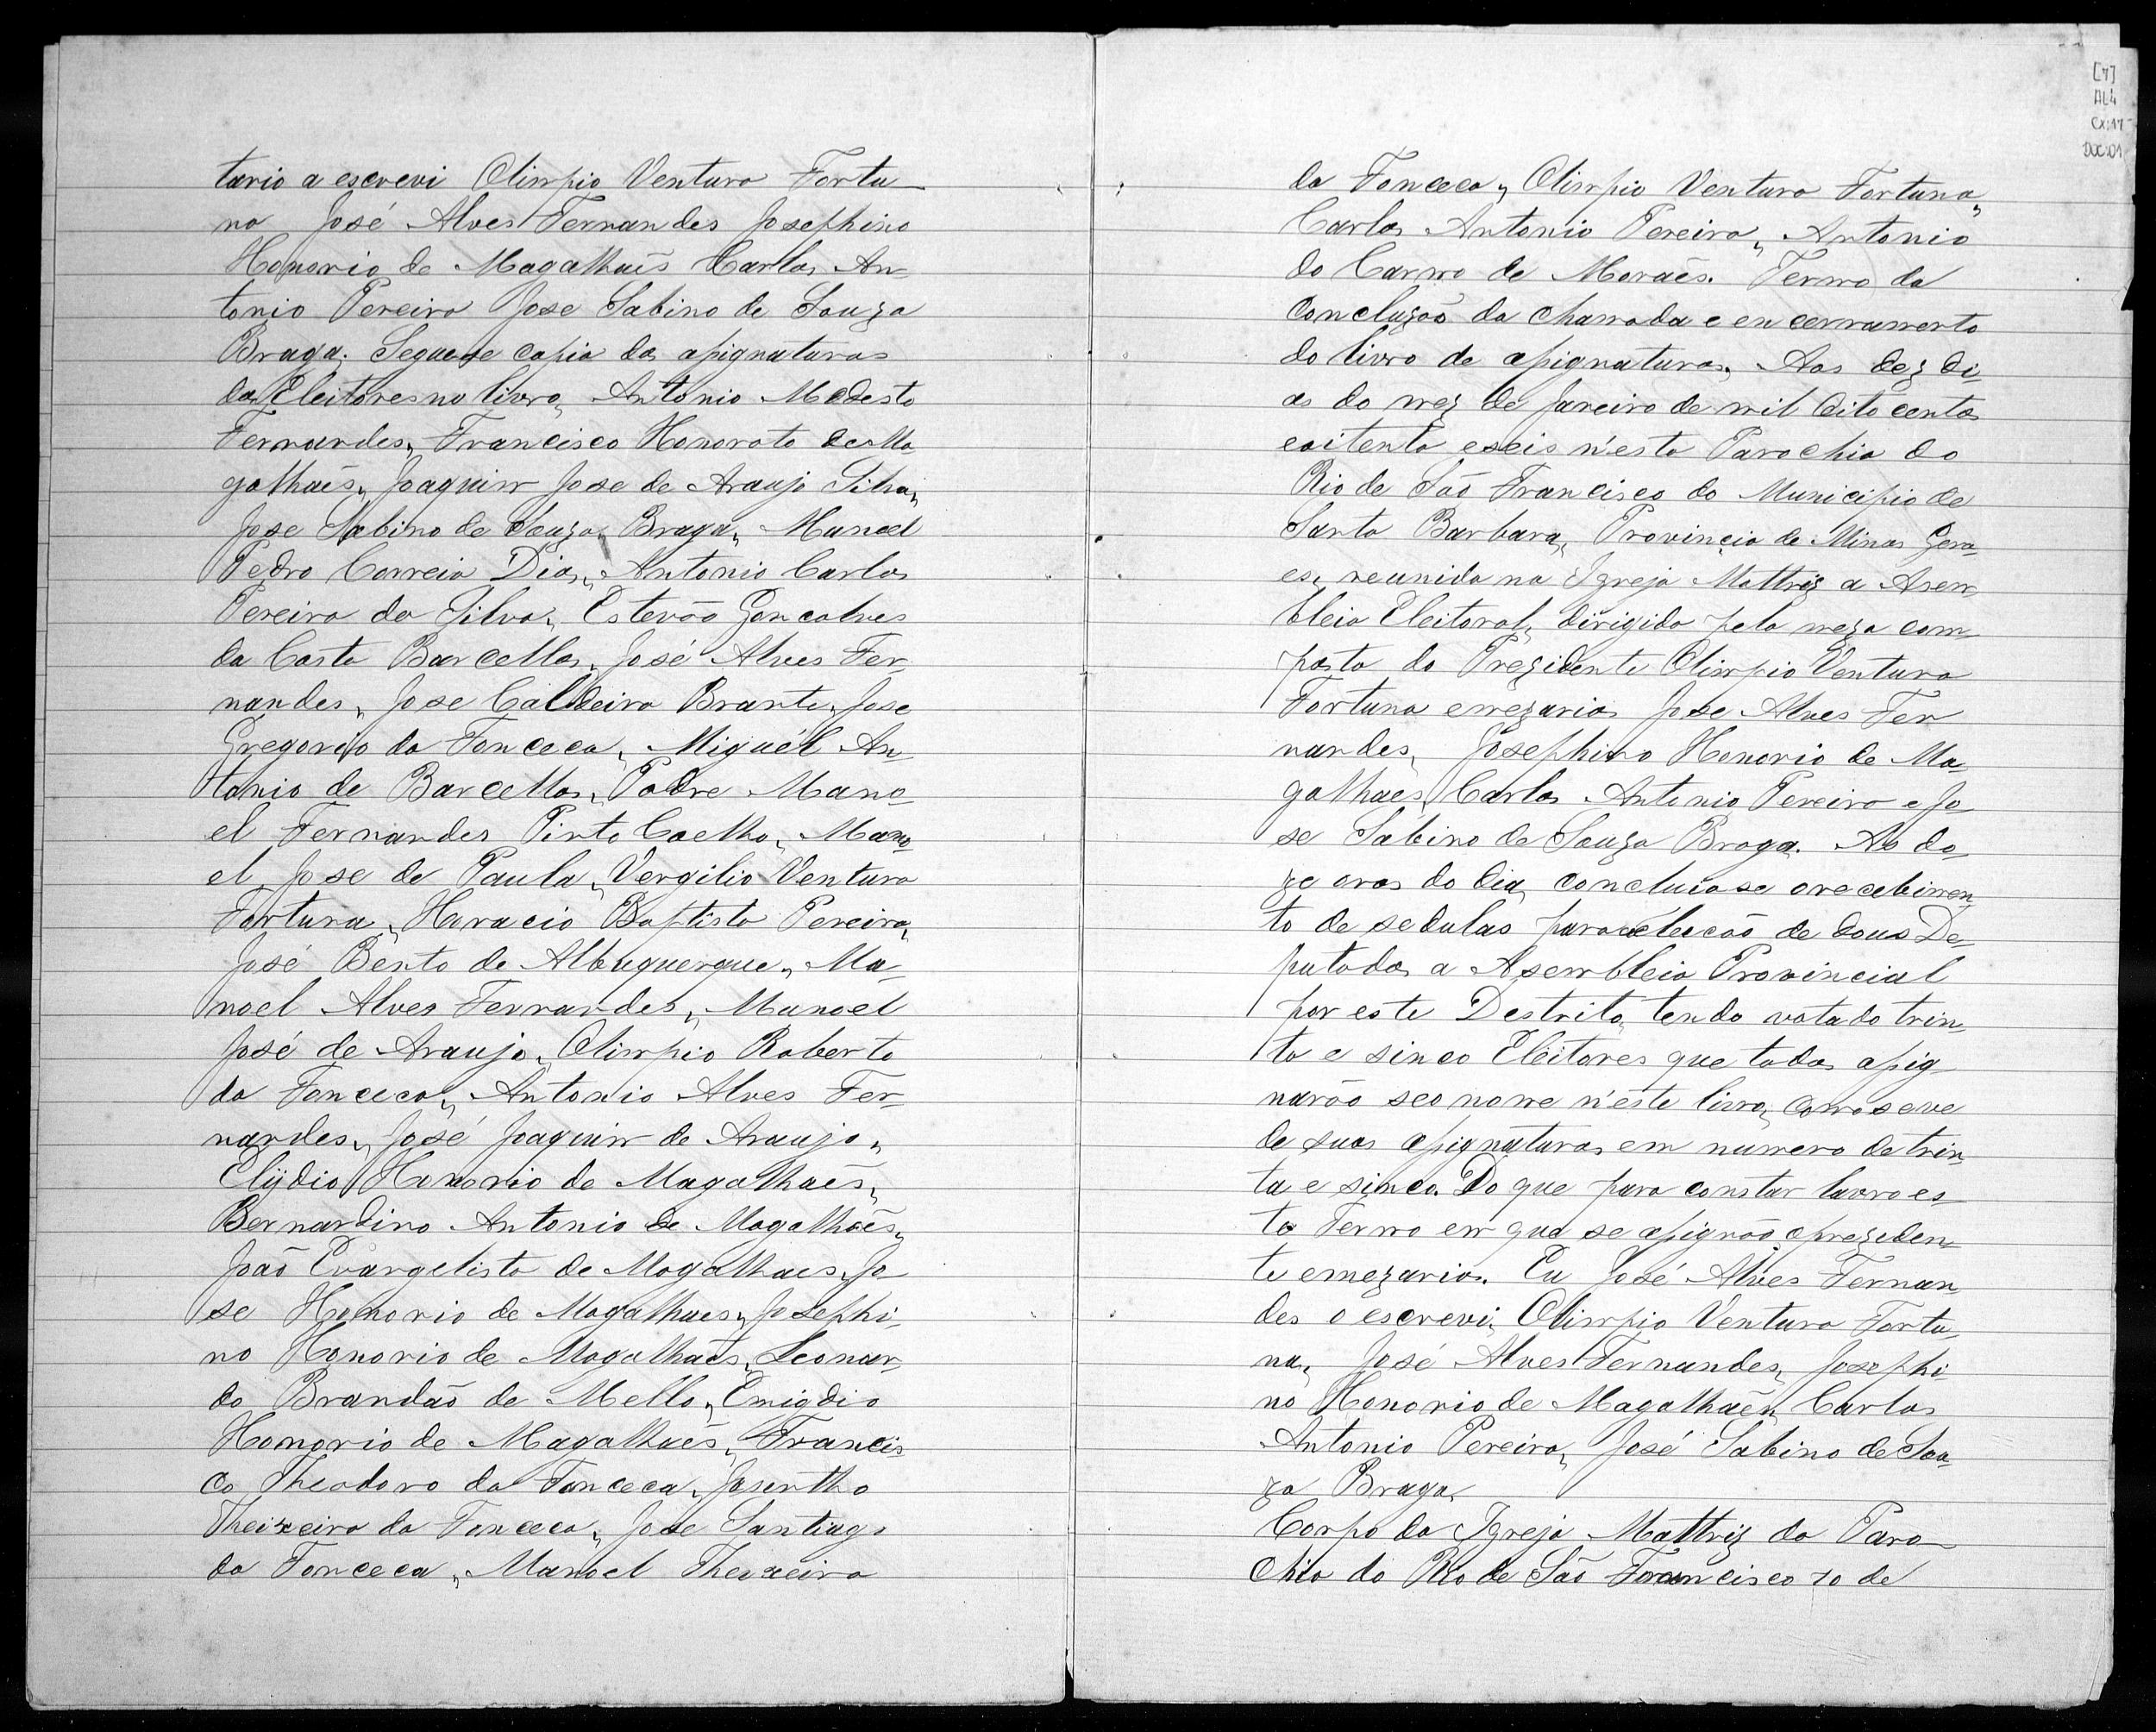 tario a escrevi Olimpio Ventura Fortu-
na José Alves Fernandes Josephino
Honorio de Magalhaẽs Carlos An-
tonio Pereira Jose Sabino de Souza
Braga. Seguese copia das assignaturas
dos Eleitores no livro, Antonio Modesto
Fernandes, Francisco Honorato de Ma
galhaẽs, Joaquim Jose de Araujo Silva,
Jose Sabino de Souza Braga, Manoel
Pedro Correia Dias, Antonio Carlos
Pereira da Silva, Estevão Goncalves
da Costa Barcellos, José Alves Fer-
nandes, Jose Caldeira Brante, Jose
Gregorio da Fonceca, Miguél An-
tonio de Barcellos, Padre Mano-
el Fernandes Pinto Coelho, Mano-
el Jose de Paula, Vergilio Ventura
Fortuna, Haracio Baptista Pereira,
José Bento de Albuquerque, Ma-
noel Alves Fernandes, Manoel
José de Araujo, Olimpio Roberto
da Fonceca, Antonio Alves Fer-
nandes, José Joaquim de Araujo,
Elydio Honorio de Magalhaẽs,
Bernardino Antonio de Magalhaẽs,
João Evangelista de Magalhaes, Jo-
se Honorio de Magalhaes, Josephi-
no Honorio de Magalhaẽs, Leonar-
do Brandaõ de Mello, Emigdio
Honorio de Magalhaẽs, Francis-
co Theodoro da Fonceca, Josintho
Theixeira da Fonceca, Jose Santiago
da Fonceca, Manoel Theixeira
[7]
AL4
CX:17
DOC:01
da Fonceca, Olimpio Ventura Fortuna,
Carlos Antonio Pereira, Antonio
do Carmo de Moraẽs. Termo da
Concluzaõ da chamada e encerramento
do livro de assignaturas. Aos dez di-
as do mez de Janeiro de mil Oito centos
eoitenta eseis n'esta Parochia do
Rio de Saõ Francisco do Municipio de
Santa Barbara, Provincia de Minas Gera-
es, reunida na Igreja Mattriz a Asem-
bleia Eleitoral, dirigida pela meza com-
posta do Prezidente Olimpio Ventura
Fortuna emezarios Jose Alves Fer
nandes, Josephino Honorio de Ma-
galhaes, Carlos Antonio Pereira e Jo-
se Sabino de Souza Braga. As do-
ze oras do dia, concluiose orecebimen-
to de sedulas para eleicaõ de dous De-
putados a Assembleia Provincial
por este Destrito, tendo votado trin-
ta e sinco Eleitores que todos assig-
narão seo nome n'este livro, como se ve
de suas assignaturas em numero de trin-
ta e sinco. Do que para constar lavro es-
te Termo em que se assignão oprezeden-
te emezarios. Eu José Alves Fernan
des o escrevi, Olimpio Ventura Fortu-
na, José Alves Fernandes, Josephi-
no Honorio de Magalhaẽs, Carlos
Antonio Pereira, José Sabino de Sou-
za Braga.
Corpo da Igreja Mattriz da Paro-
chia do Rio de Saõ Francisco 10 de